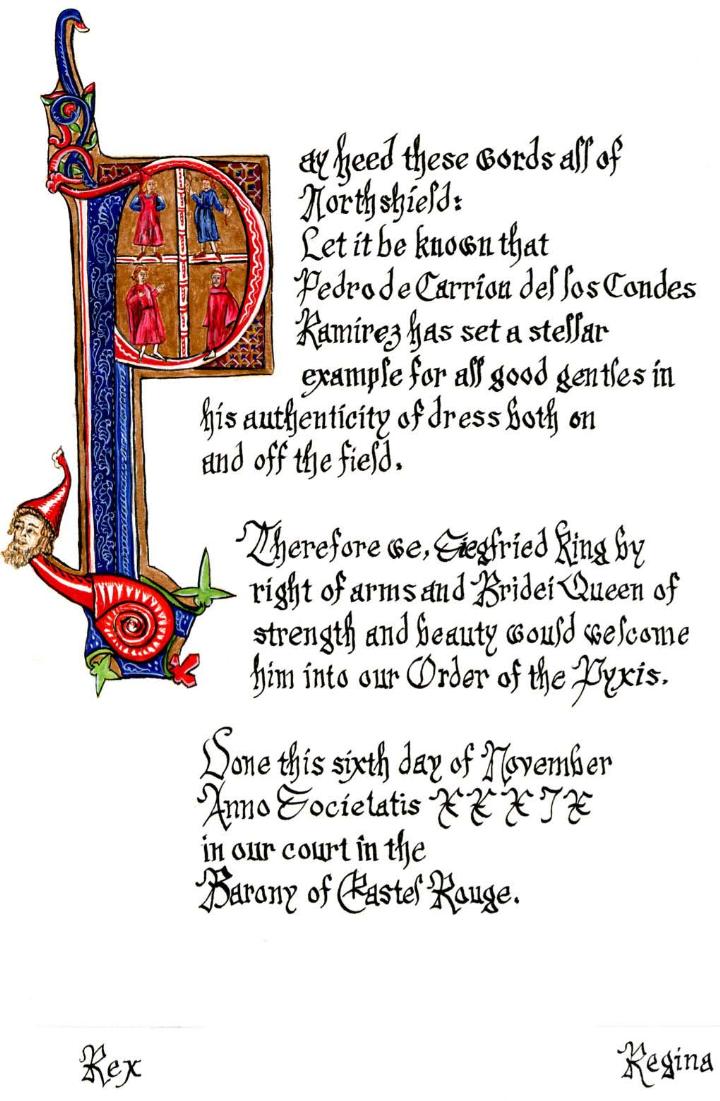 Pay heed these words all of
Northshield:
Let it be known that
Pedro de Carrion del los Condes
Ramirez has set a stellar
example for all good gentles in
his authenticity of dress both on
and off the field.
Therefore we, Siegfried King by
right of arms and Bridei Queen of
strength and beauty would welcome
him into our Order of the Pyxis.
Done this sixth day of November
Anno Societatis XXXIX
in our court in the
Barony of Castel Rouge.
Rex
Regina